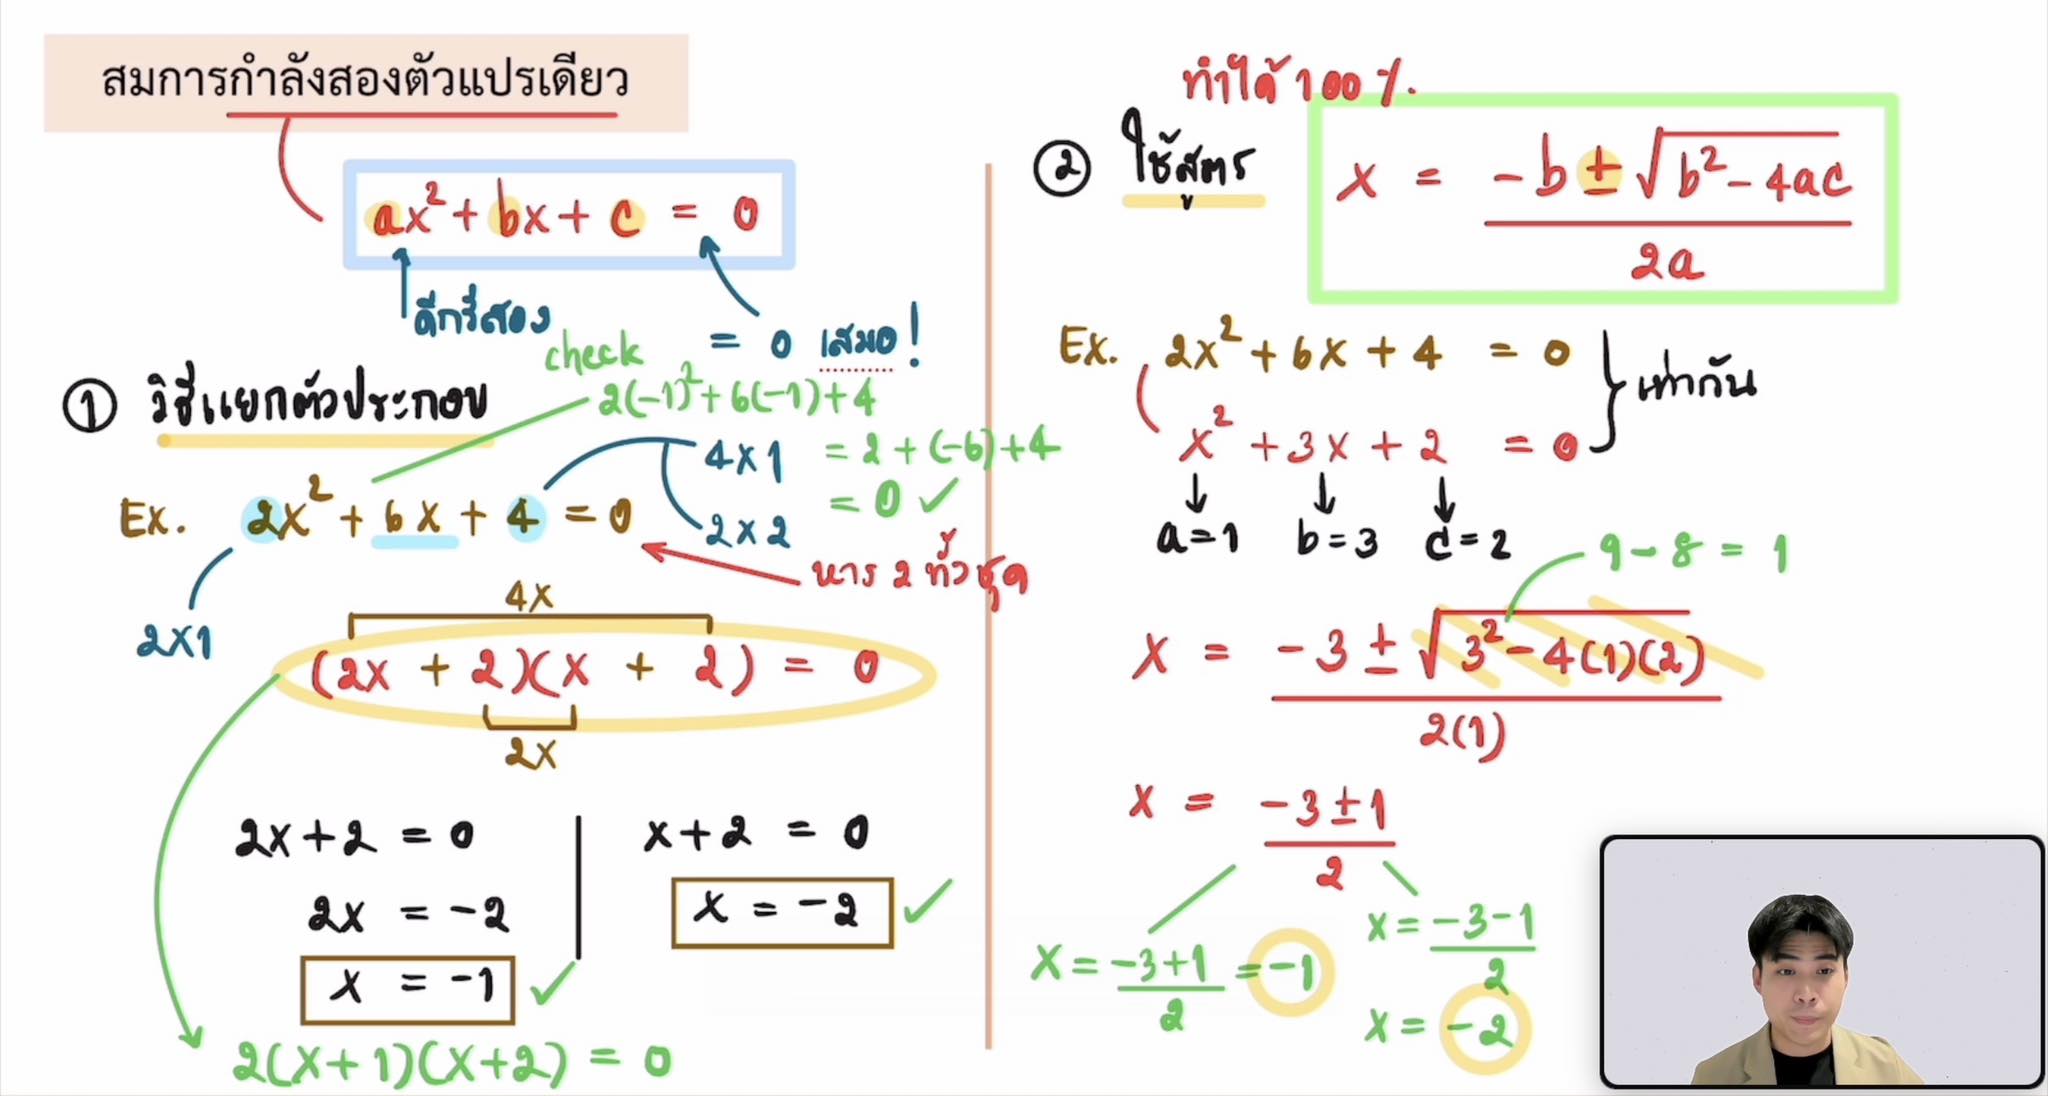 สมการกำลังสองตัวแปรเดียว
ax² + bx + c = 0
ดีกรีสอง
= 0 เสมอ!
① วิธีแยกตัวประกอบ
check
2(-1)² + 6(-1) + 4
= 2 + (-6) + 4
= 0 ✓
4x1
2x2
Ex. 2x² + 6x + 4 = 0
หาร 2 ทั้งชุด
2x1
4x
(2x + 2)(x + 2) = 0
2x
2x + 2 = 0
2x = -2
x = -1 ✓
x + 2 = 0
x = -2 ✓
2(x+1)(x+2) = 0
ทำได้ 100 %.
② ใช้สูตร
x = -b ± √b² - 4ac
2a
Ex. 2x² + 6x + 4 = 0
x² + 3x + 2 = 0
เท่ากัน
a=1 b=3 c=2
9 - 8 = 1
x = -3 ± √3² - 4(1)(2)
2(1)
x = -3 ± 1
2
x = -3+1 = -1
2
x = -3-1
2
x = -2